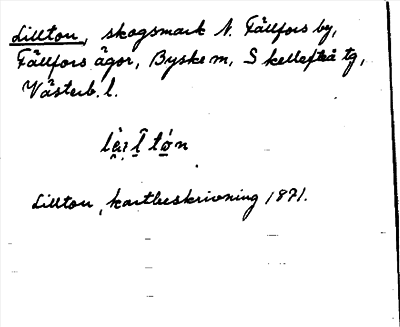 Lillton, skogsmark N. Fällfors by,
Fällfors ägor, Byske sn, Skellefteå tg,
Västerb. l.
Lillton, kartbeskrivning 1871.